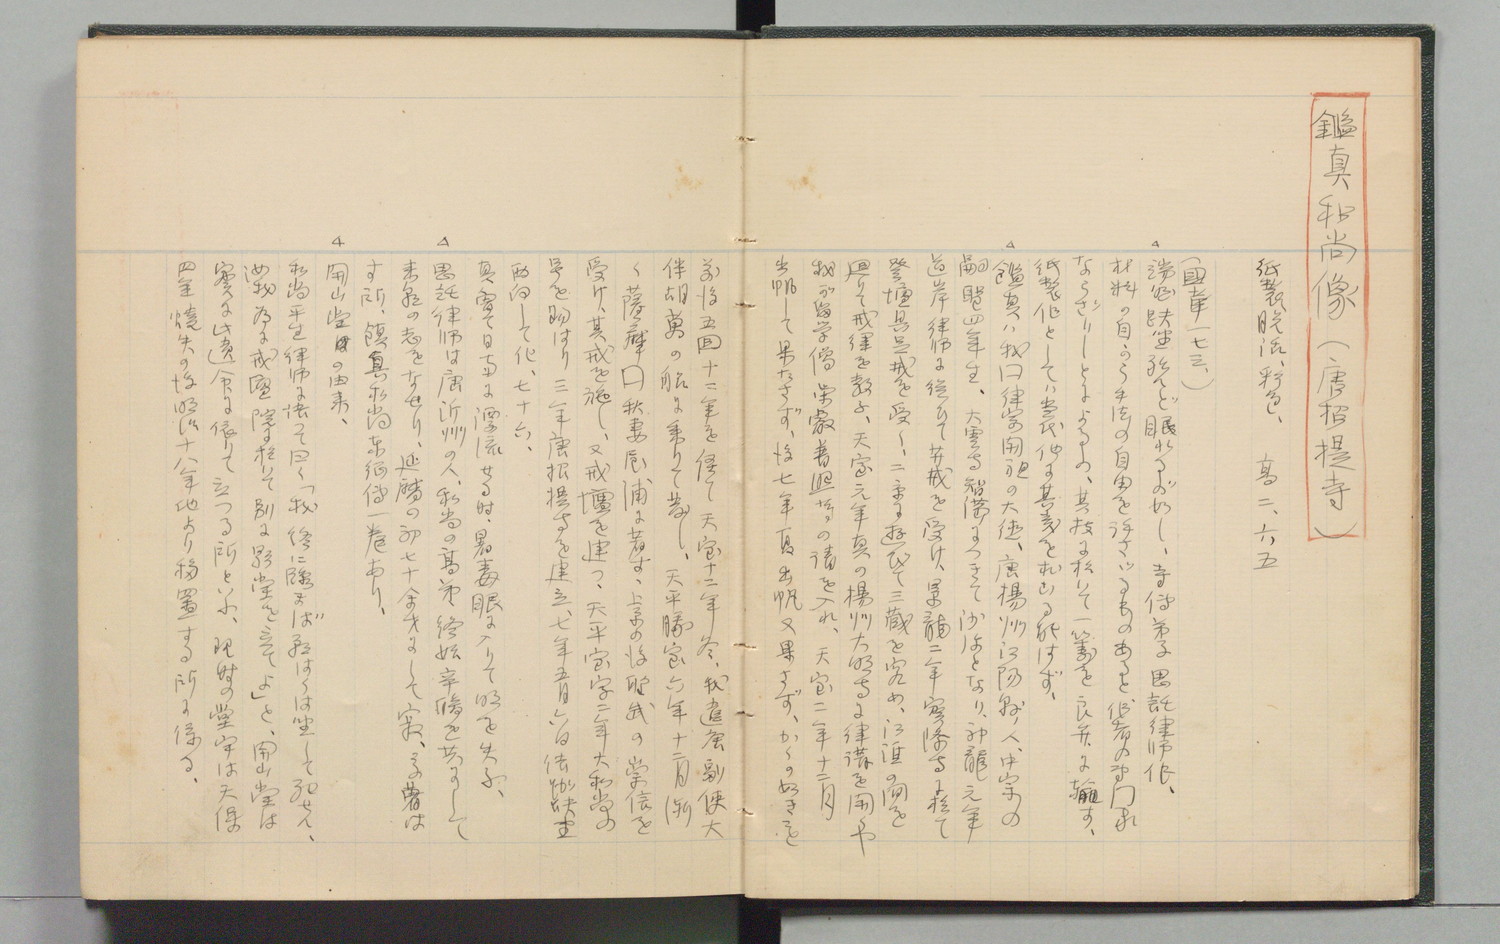 鑑真和尚像（唐招提寺）
紙製脱活、彩色、　高二、六五
（国華一七三、）
端坐趺坐殆んど眠れるが如し、寺伝弟子思託律師作、
材料の自から手法の自由を許さゞるものあると作者の専門家
ならざりしとによるか、其技に於いて一籌を良弁に輸す、
紙製作としては当代他に其美を松むる能はず、
鑑真は我国律宗開祖の大徳、唐揚州江陽県人、中宗の
嗣聖四年生、大雲寺智満につきて沙弥となり、神龍元年
道岸律師に従ひて菩戒を受け、景龍二年実際寺に於て
登壇具足戒を受く、二京に遊びて三蔵を究め、江淮の間を
廻りて戒律を教ふ、天宝元年真の揚州大明寺に律講を開くや
我が留学僧栄叡普照等の請を入れ、天宝二年十二月
出帆して果たさず、後七年夏出帆又果さず、かくの如きこと
前後五回十二年を経て天宝十二年冬、我遣唐副使大
伴胡萬の船に乗りて発し、天平勝宝六年十二月漸
く薩摩国秋妻屋浦に着す、上京の後聖武の崇信を
受け、其戒を施し、又戒壇を建つ、天平宝字二年大和尚の
号を賜はり三年唐招提寺を建立、七年五月六日結跏趺坐
西向して化、七十六、
真嘗て日南に漂流せる時、暑毒眼に入りて明を失ふ、
思託律師は唐沂州の人、和尚の高弟終始辛酸を共にして
来朝の志をなせり、延暦の初七十余才にして寂、その著は
す所、鑑真和尚東征伝一巻あり、
開山堂の由来、
和尚平生律師に語って曰く「我終に臨まば願はくは坐して死せん、
汝我が為に戒壇院に於いて別に影堂を立てよ」と、開山堂は
実に此遺命に依りて立つる所といふ、現時の堂宇は天保
四年焼失の後明治十八年他より移置する所に係る、